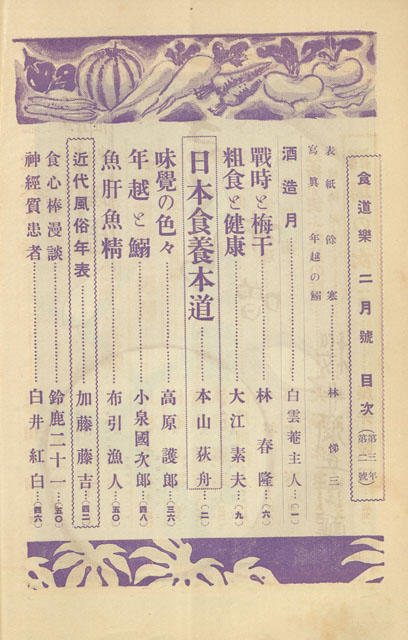 食道樂 二月號 目次 (第三年 第二號)
表紙 餘寒……林悌三
寫眞 年越の鰯
酒造月……白雲菴主人(一)
戰時と梅干……林春隆(六)
粗食と健康……大江素夫(九)
日本食養本道……本山荻舟(二)
味覺の色々……高原護郎(三六)
年越と鰯……小泉國次郎(四八)
魚肝魚精……布引漁人(五〇)
近代風俗年表……加藤藤吉(四二)
食心棒漫談……鈴鹿二十一(五〇)
神經質患者……白井紅白(四六)